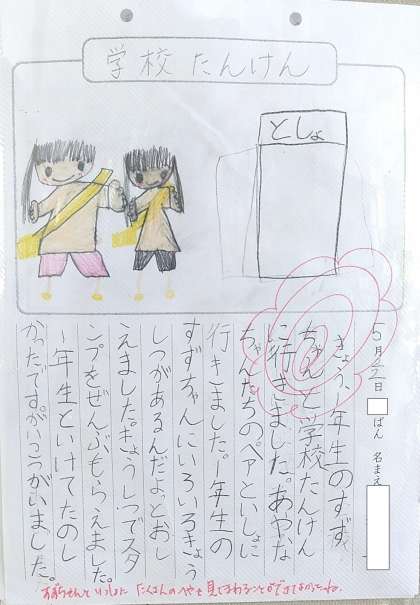 学校たんけん
としょ
5月2日 ばん 名まえ
きょう、一年生のすず
ちゃんと学校たんけん
に行きました。あやな
ちゃんたちのペアといしょに
行きました。一年生の
すずちゃんにいろいろきょう
しつがあるんだよっとおし
えました。きょうしつでスタ
ンプをぜんぶもらえました。
一年生といけてたのし
かったですがいつがいました。
すずちゃんといっしょに たくさんのへやを見てまわることができてよかったね。